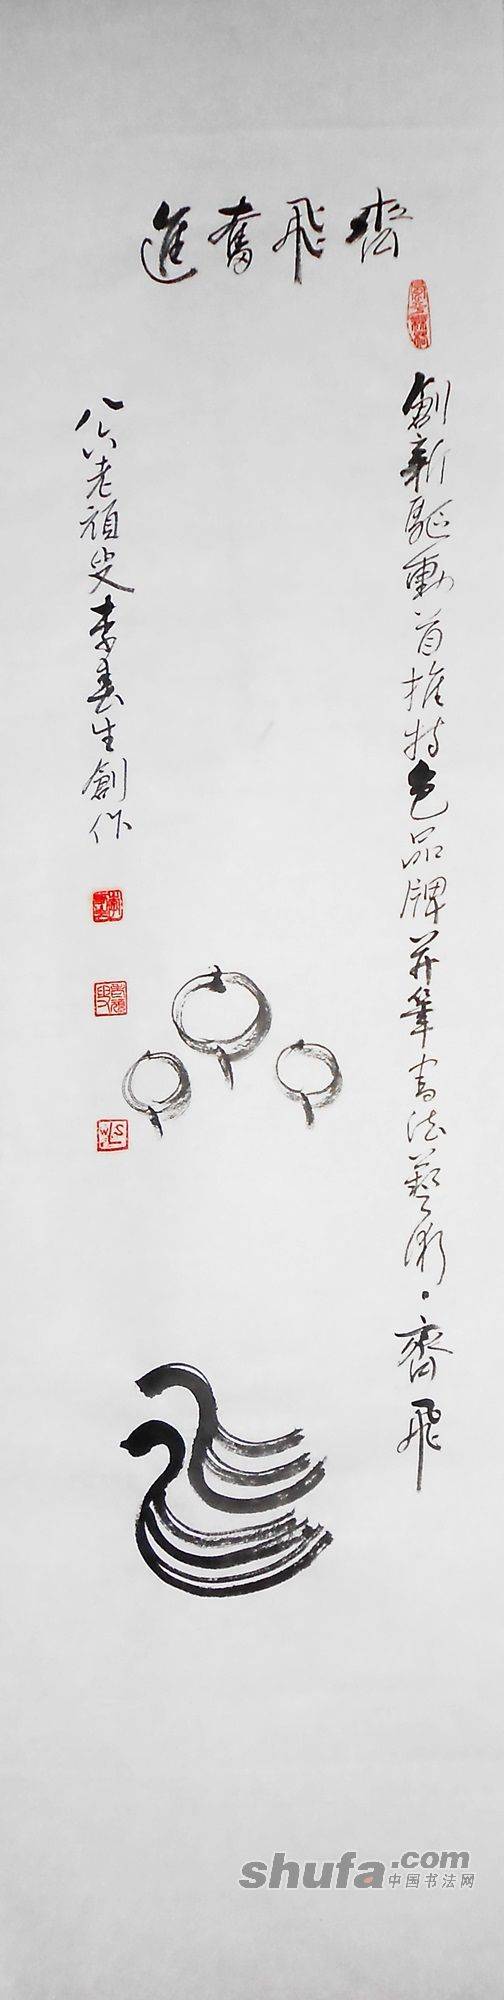 齊飛奮進
創新驅動首推特色品牌并筆書法藝術·齊飛
八六老頑叟李春生創作
shufa.com
中国书法网